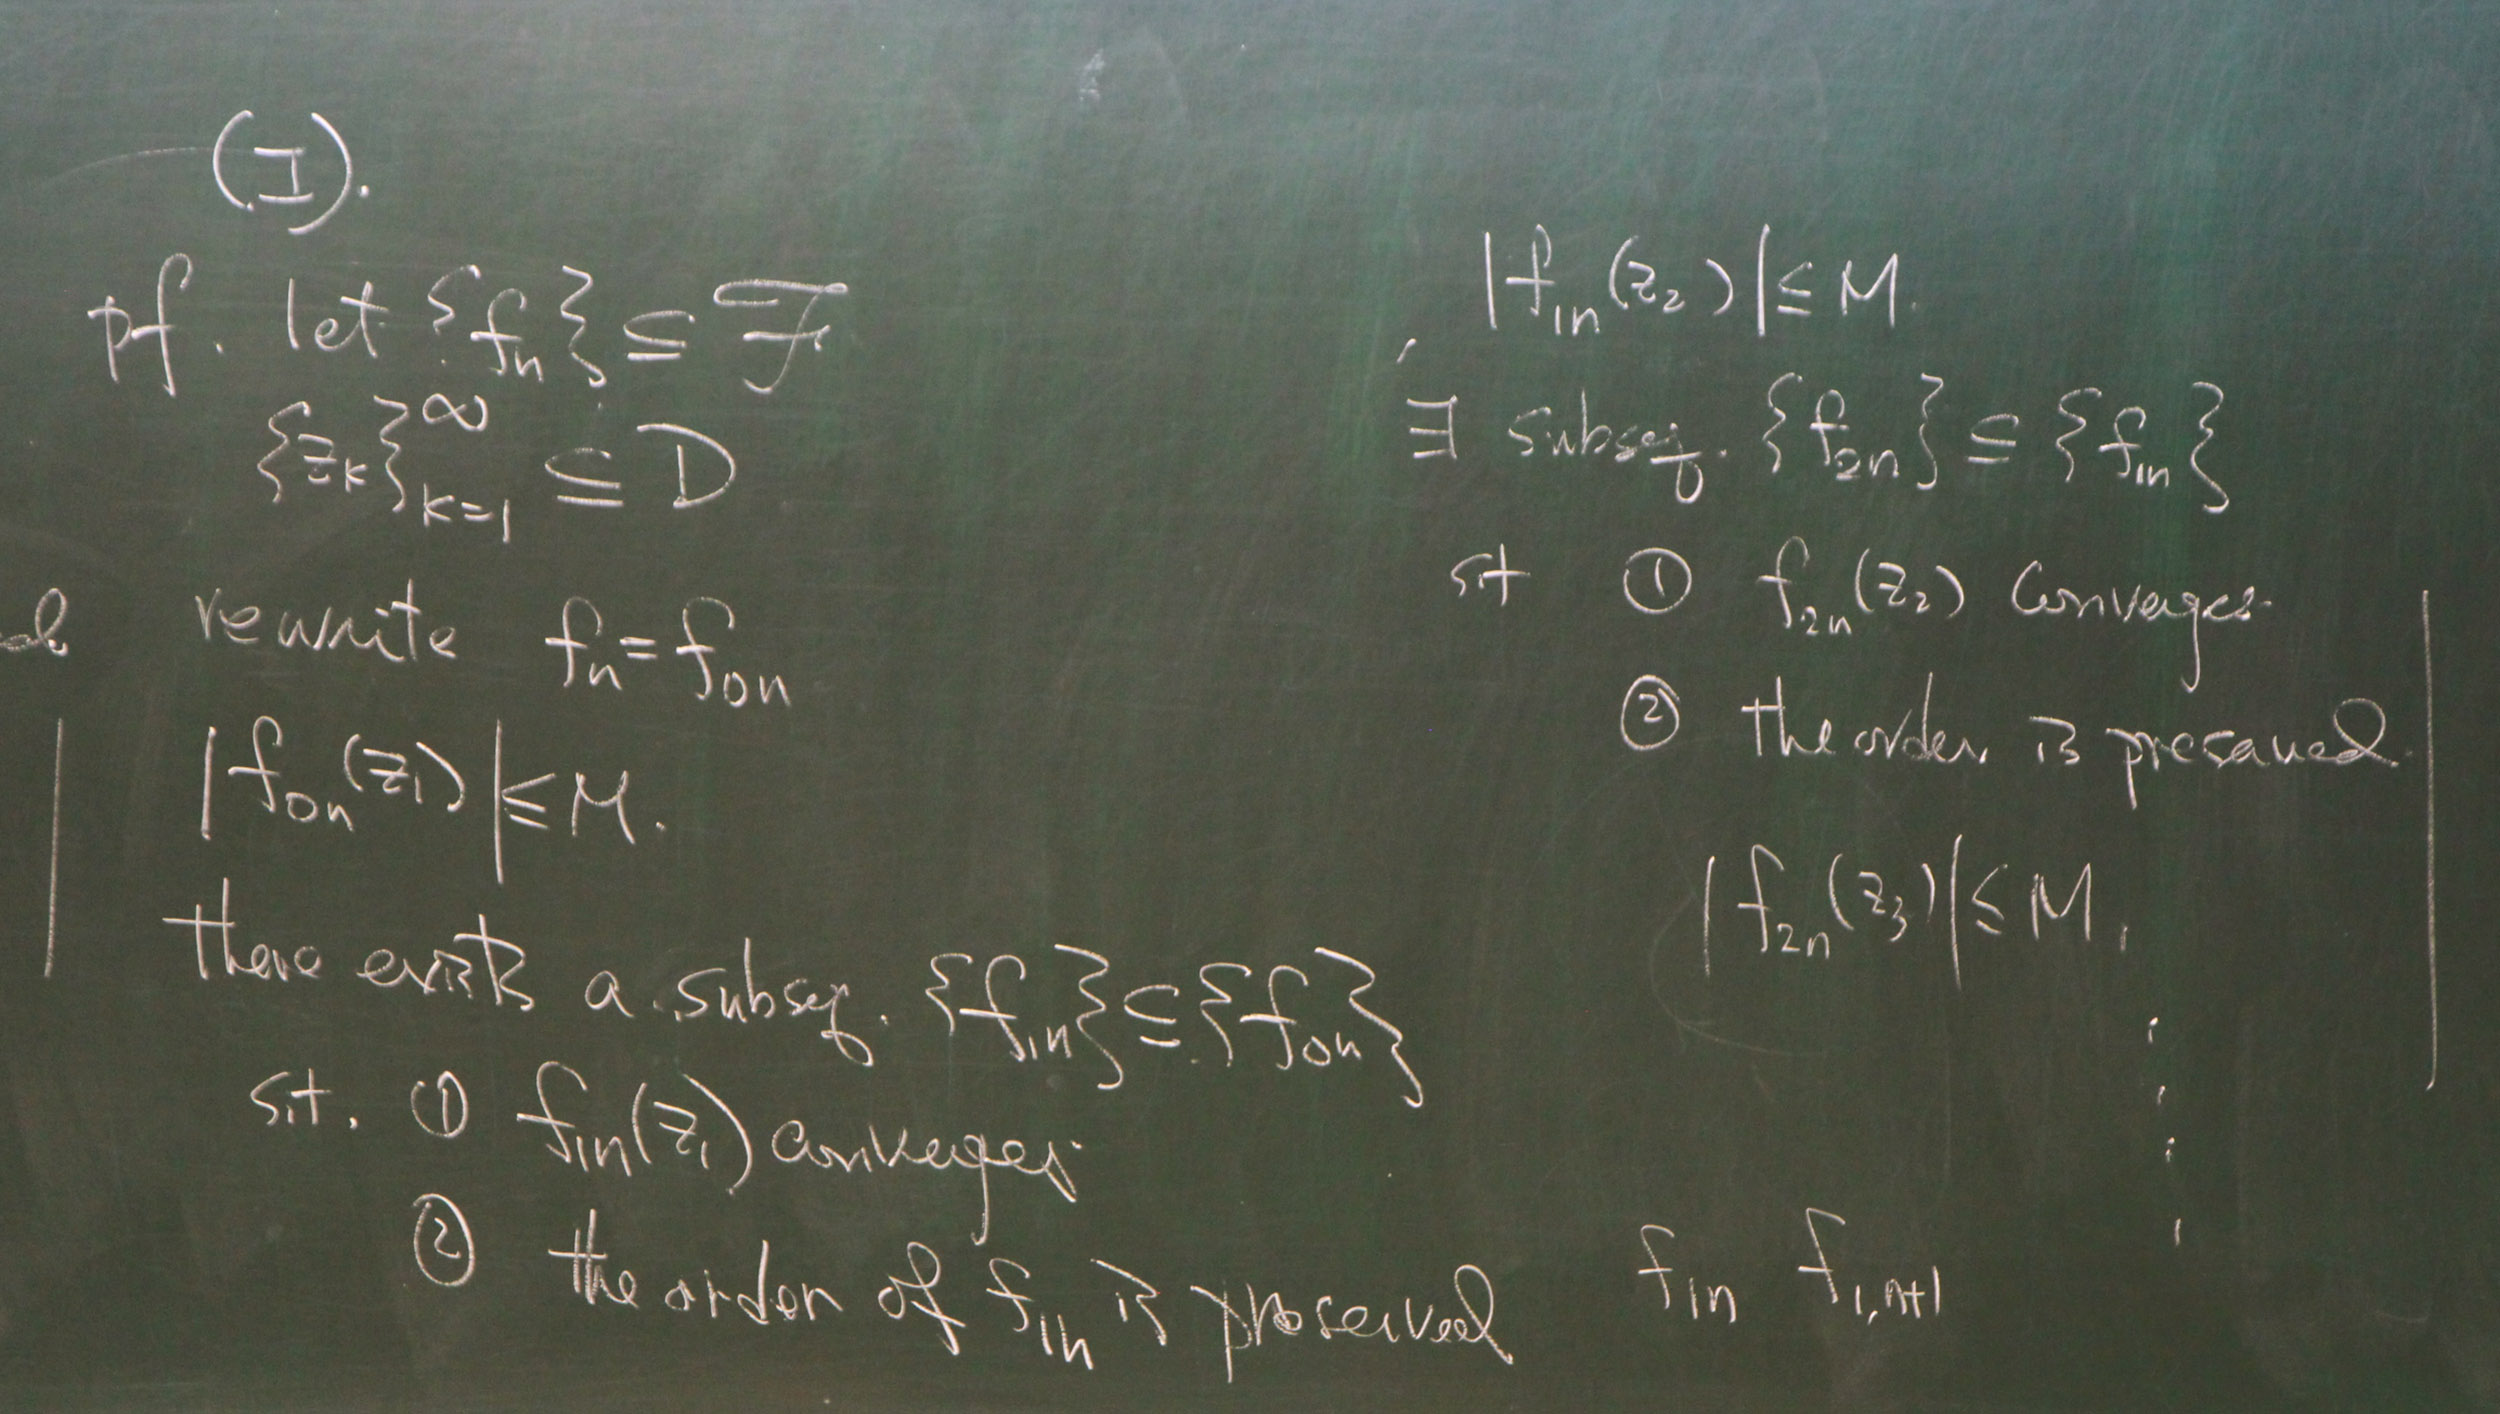 (I).
pf. let {fₙ} ⊆ ℱ
{z_k}_{k=1}^∞ ⊆ D
rewrite fₙ = f₀ₙ
|f₀ₙ(z₁)| ≤ M.
there exists a subseq. {f₁ₙ} ⊆ {f₀ₙ}
s.t. ① f₁ₙ(z₁) converges.
② the order of f₁ₙ is preserved
|f₁ₙ(z₂)| ≤ M.
∃ subseq. {f₂ₙ} ⊆ {f₁ₙ}
st ① f₂ₙ(z₂) converges.
② the order is preserved.
|f₂ₙ(z₃)| ≤ M,
⋮
f₁ₙ f_{1,n+1}